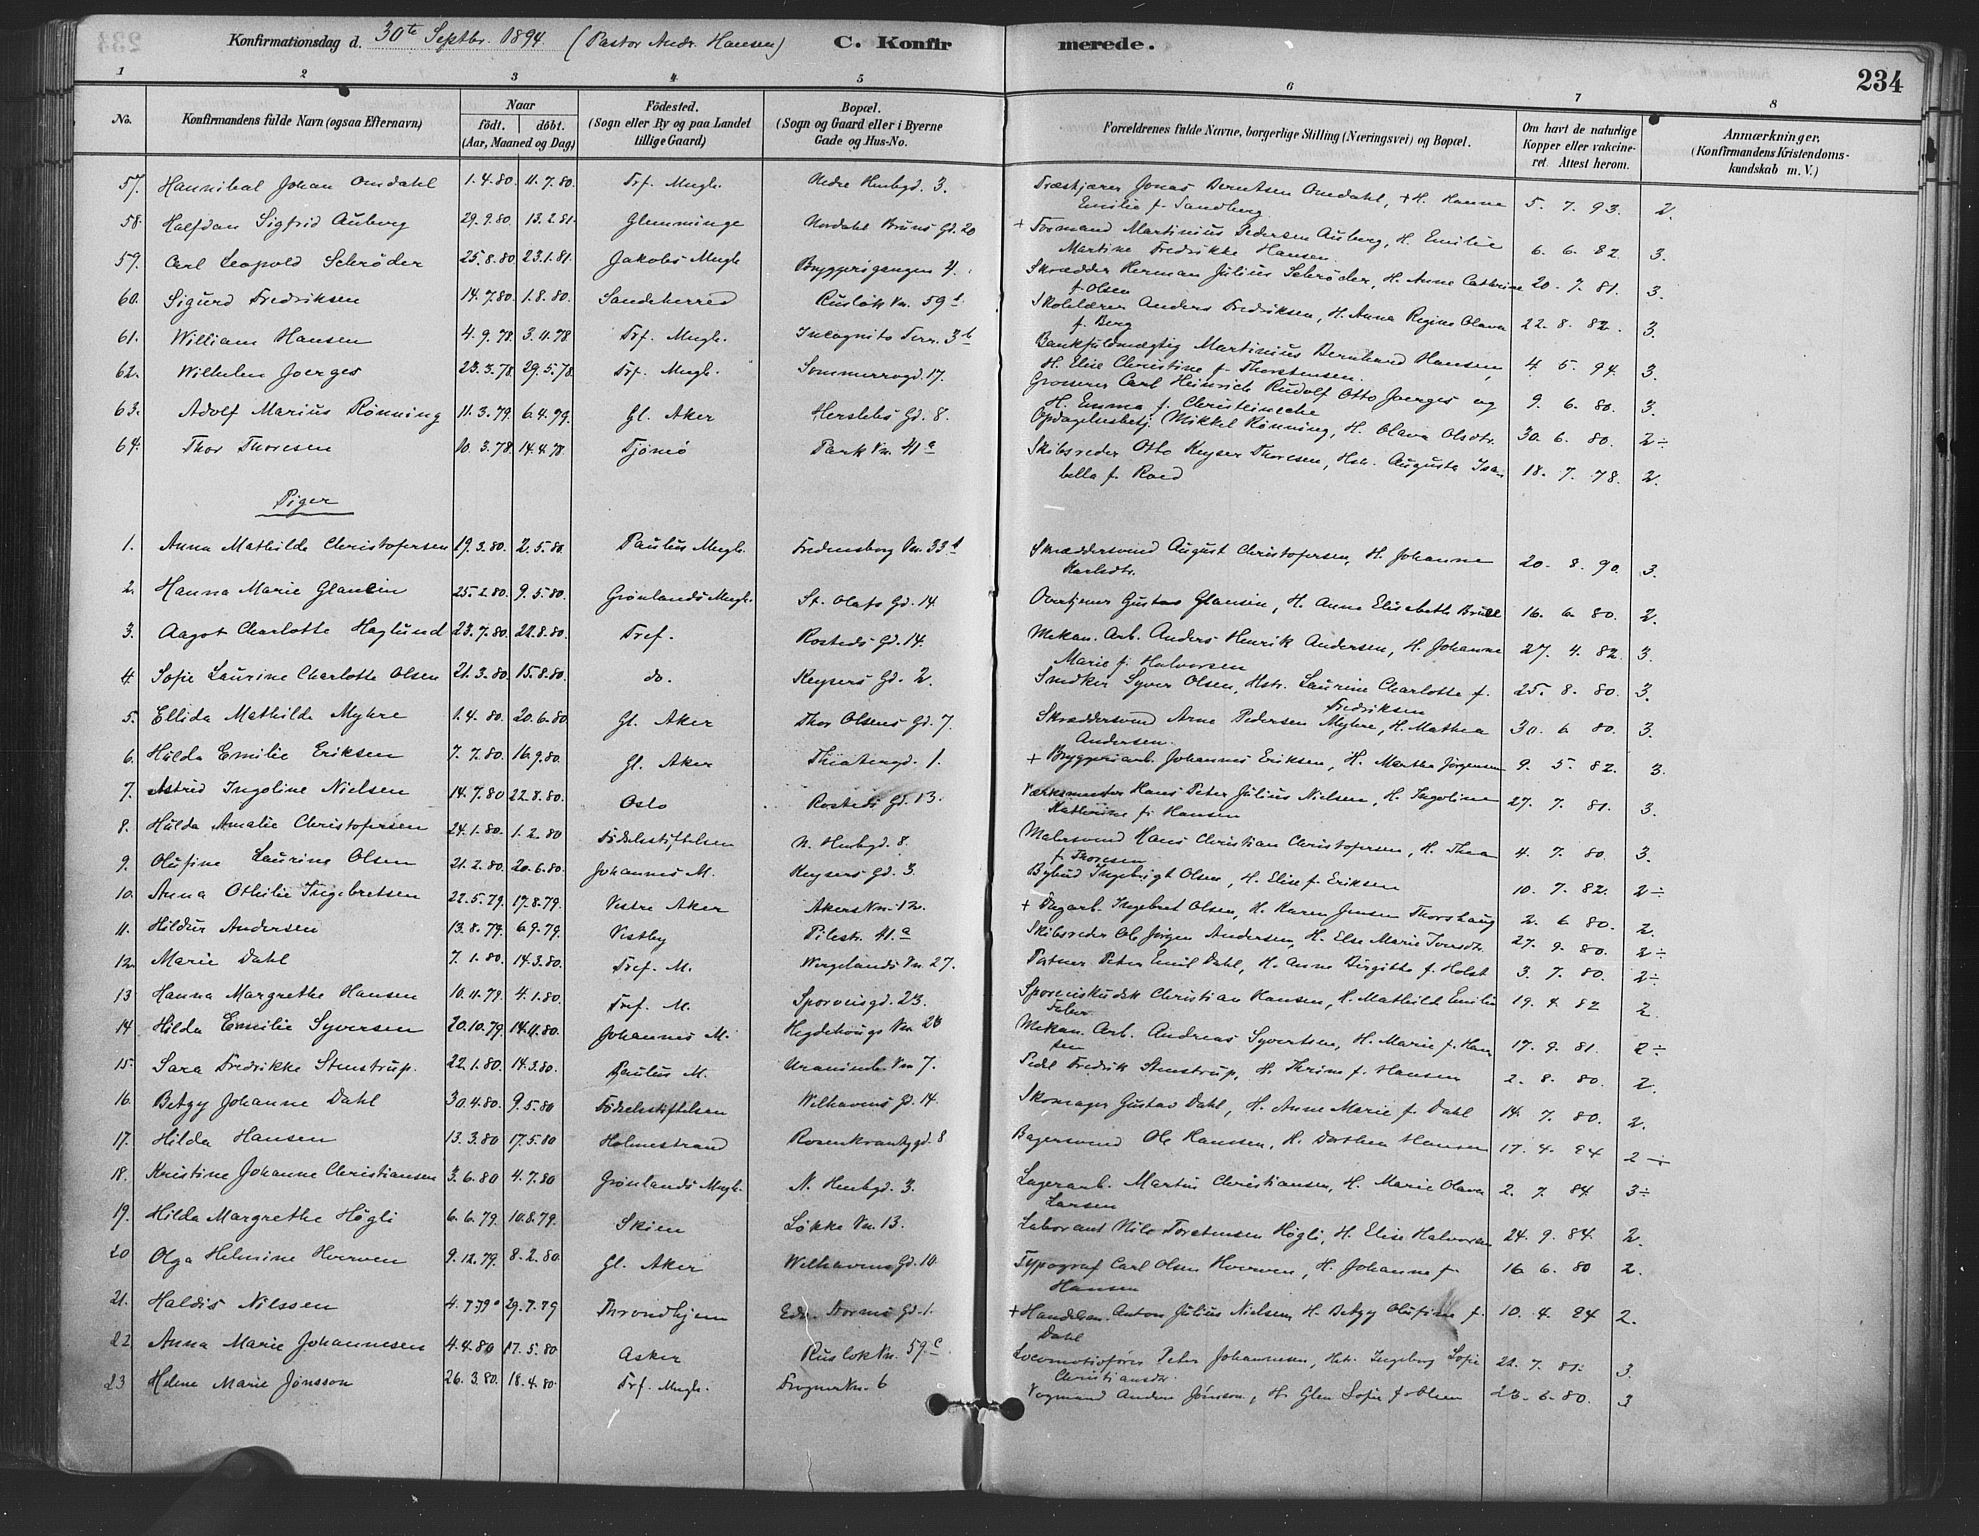 Konfirmationsdag d. 30te Septbr. 1894 (Pastor Andr. Hansen) C. Konfirmerede. 234
1 2 3 4 5 6 7 8
No. Konfirmandens fulde Navn (ogsaa Efternavn) Naar født. døbt. (Aar, Maaned og Dag) Fødested. (Sogn eller By og paa Landet tillige Gaard) Bopæl. (Sogn og Gaard eller i Byerne Gade og Hus-No. Forældrenes fulde Navne, borgerlige Stilling (Næringsvei) og Bopæl. Om havt de naturlige Kopper eller vakcineret. Attest herom. Anmærkninger. (Konfirmandens Kristendomskundskab m. V.)
57. Hannibal Johan Omdahl 1.4.80. 11.7.80. Trf. Mngh. 3. Jonas Berntsen Omdahl, + H. Hanna Emilie f. Sandberg 5. 7. 93. 2.
58. Halfdan Sigfrid Auberg 29.9.80 13.2.81. Glemminge Nordahl Bruns Gd. 20 + Formand Martinius Pedersen Auberg, H. Emilie Martine Fredrikke Hansen. 6. 6. 82. 3.
59. Carl Leopold Schrøder 25.8.80 23.1.81. Jakobs Mngh. Bryggerigangen 4. Skrædder Herman Julius Schrøder, H. Anne Cathrine f. Olsen 20. 7. 81. 3.
60. Sigurd Fredriksen 14.7.80 1.8.80. Sandeherred Rusløk Vn. 59 Skolelærer Anders Fredriksen, H. Anna Regine Olava f. Berg 22. 8. 82. 3.
61. William Hansen 4.9.78. 3.11.78 Trf. Mngh. Incognito Terr. 3b Bankfuldmægtig Martinius Bernhard Hansen, H. Elise Christine f. Thorstensen. 4 5. 94. 3.
62. Wilhelm Joerges 23.3.78. 29.5.78 Trf. Mngh. Sommerrogd. 17. Grosserer Carl Heinrich Rudolf Otto Joerges og H. Emma f. 9. 6. 80. 3.
63. Adolf Marius Rønning 11.3.79. 6.4.79. Gl. Aker Herslebs Gd. 8. Opdagelsesbetj. Mikkel Rønning, H. Olava Olsdtr. 30. 6. 80. 2÷
64. Thor Thoresen 10.3.78. 14.4.78 Tjømø Park Vn. 41a Skibsreder Otto Keyser Thoresen, Hstr. Augusta Isabella f. Roed 18. 7. 78. 2.
Piger
1. Anna Mathilde Christofersen 19.3.80. 2.5.80. Paulus Mngh. Fredensborg Vn. 33 Skræddersvend August Christofersen, H. Johanne Karlsdtr. 20. 8. 90. 3.
2. Hanna Marie Glansin 25.2.80. 9.5.80. Grønlands Mngh. St. Olafs Gd. 14 Gustav Glansin, H. Anne Elisabeth 16. 6. 80. 2.
3. Aagot Charlotte Haglund 23.7.80. 22.8.80. Tref. Rosteds Gd. 14. Mekan. Arb. Anders Henrik Andersen, H. Johanne Marie f. Halvorsen 27. 4. 82. 3.
4 Sofie Laurine Charlotte Olsen 21.3.80. 15.8.80. do. Keysers Gd. 2. Snedker Syver Olsen, Hstr. Laurine Charlotte f. Fredriksen 25. 8. 80. 3.
5. Ellida Mathilde Myhre 1.4.80. 20.6.80 Gl. Aker Thor Olsens Gd. 7. Skræddersvend Arne Pedersen Myhre, H. Mathea Andersen. 30. 6 80. 3.
6. Hilda Emilie Eriksen 7.7.80. 16.9.80. Gl. Aker Theatergd. 1. + Bryggeriarb. Johannes Eriksen, H. Marthe Jørgensen 9. 5. 82. 3.
7. Astrid Ingoline Nielsen 14.7.80 22.8.80. Oslo Rosteds Gd. 13. Værksmester Hans Peter Julius Nielsen, H. Ingoline Kathrine f. Hansen 27. 7. 81. 3.
8. Hilda Amalie Christofersen 24.1.80. 1.2.80 Fødselsstiftelsen 8. Malersvend Hans Christian Christofersen, H. Thea f. Thoresen 4. 7. 80. 3.
9. Olufine Laurine Olsen 21.2.80. 20.6.80. Johannes M. Keysers Gd. 3. Bybud Ingebrigt Olsen, H. Elise f. Eriksen 10. 7. 82. 2÷
10. Anna Othilie Ingebretsen 22.5.79. 17.8.79. Vestre Aker Akers Vn. 12. + Dagarb. Ingebret Olsen, H. Karen Jensen Thorshaug 2. 6 80. 2.
11. Hildur Andersen 13.8.79. 6.9.79. Vestby Pilestr. 41.a Skibsreder Ole Jørgen Andersen, H. Else Marie 27. 9. 80. 2÷
12. Marie Dahl 7.1.80. 14.3.80. Tref. M. Wergelands Vn. 27. Peter Emil Dahl, H. Anne Birgitte f. Holst 3. 7. 80. 2÷
13. Hanna Margrethe Hansen 10.11.79. 4.1.80. Tref. M. Sporveisgd. 23. Sporveiskudsk Christian Hansen, H. Mathilde Emilie 19. 4. 82 2.
14. Hilda Emilie Syversen 20.10.79. 14.11.80. Johannes M. Hegdehougs Vn 26 Mekan. Arb. Andreas Syvertsen, H. Marie f. Hansen 17. 9. 81. 2÷
15. Sara Fredrikke Stenstrup. 22.1.80. 14.3.80. Paulus M. Uranienb. Vn 7. Pedel Fredrik Stenstrup, H. Thrine f. Hansen 2. 8. 80. 2.
16. Betzy Johanne Dahl 30.4.80. 9.5.80 Fødselsstiftelsen Welhavens Gd. 14 Skomager Gustav Dahl, H. Anne Marie f. Dahl 14. 7. 80. 2.
17. Hilda Hansen 13.3.80 17.5.80 Holmestrand Rosenkrantzgd. 8 Bagersvend Ole Hansen, H. Dorthea Hansen 17. 4. 94 2÷
18. Kristine Johanne Christiansen 3.6.80 4.7.80 Grønlands Mngh. 3. Lagerarb. Martin Christiansen, H. Marie Olava Larsen 2. 7. 84 3÷
19. Hilda Margrethe Høgli 6.6.79. 10.8.79. Skien Løkke Vn. 13. Laborant Nils Torstensen Høgli, H. Elise Halvorsen 24. 9. 84. 2.
20 Olga Helmine Hverven 9.12.79. 8.2.80. Gl. Aker Welhavens Gd. 10. Typograf Carl Olsen Hverven, H. Johanne f. Hansen 16 6. 80 2.
21. Haldis Nilssen 4.7.79 29.7.79 Throndhjem Edv. Storms Gd. 1. + Handelsm. Anton Julius Nielsen, H. Betzy Olufine f. Dahl 10. 4. 94 2.
22 Anna Marie Johannesen 4.4.80 17.5.80 Asker Rusløk Vn. 59.c Locomotivfører Peter Johannesen, Hstr. Ingeborg Sofie Christiansdtr. 22. 7. 81. 3.
23 Helene Marie Jønsson 26.3.80. 18.4.80. Trf. Mngh. Frogner Vn. 6 Vognmand Anders Jønsson, H. Sofie f. Olsen 23. 6. 80. 3